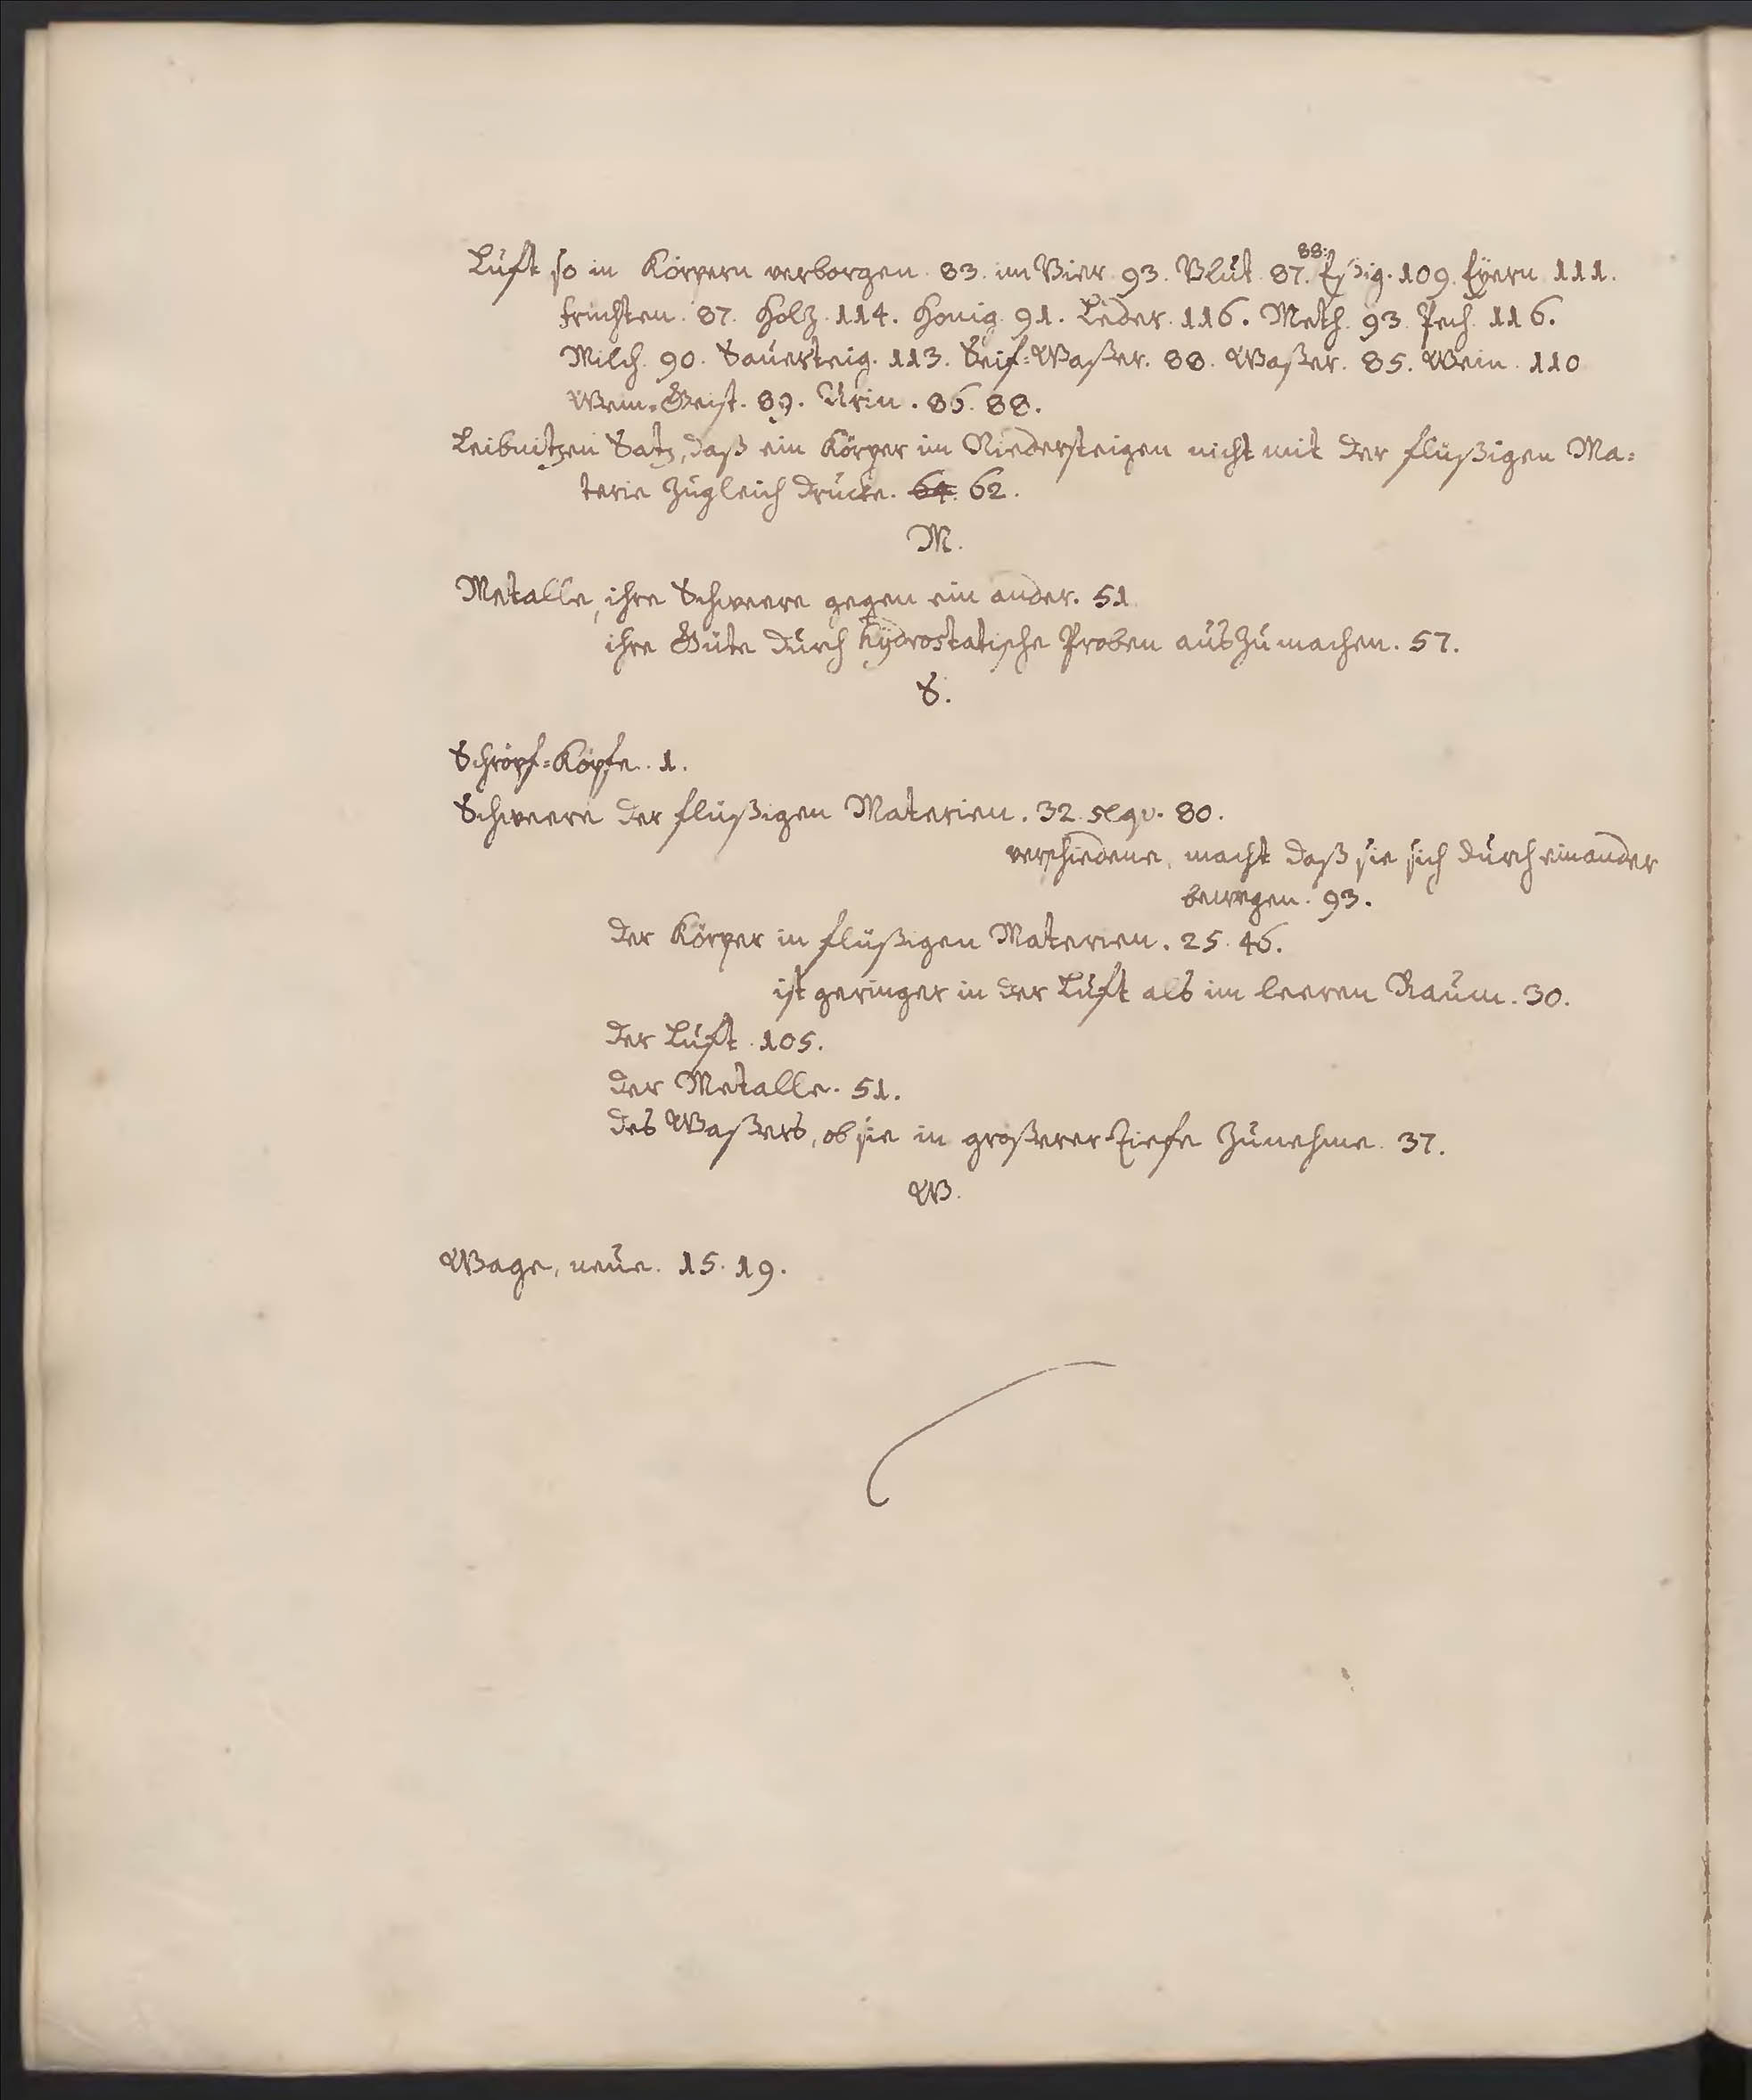 Luft so in Körpern verborgen. 83. im Bier. 93. Blut. 87. 88. Eßig. 109. Eÿern 111.
Früchten. 87. Holz. 114. Honig. 91. Leder. 116. Meth. 93. Pech. 116.
Milch. 90. Sauerteig. 113. Seif=Waßer. 88. Waßer. 85. Wein. 110
Wein=Geist. 89. Urin. 86. 88.
Leibnitzen Satz, daß ein Körper im Niedersteigen nicht mit der flüßigen Ma=
terie zugleich drücke. 64. 62.
M.
Metalle, ihre Schweere gegen ein ander. 51.
ihre Güte durch hÿdrostatische Proben auszumachen. 57.
S.
Schröpf=Köpfe. 1.
Schweere der flüßigen Materien. 32. seqv. 80.
verschiedene, macht daß sie sich durch einander
bewegen. 93.
der Körper in flüßigen Materien. 25. 46.
ist geringer in der Luft als im leeren Raum. 30.
der Luft. 105.
der Metalle. 51.
des Waßers, ob sie in großerer Tiefe zunehme. 37.
W.
Wage, neue. 15. 19.